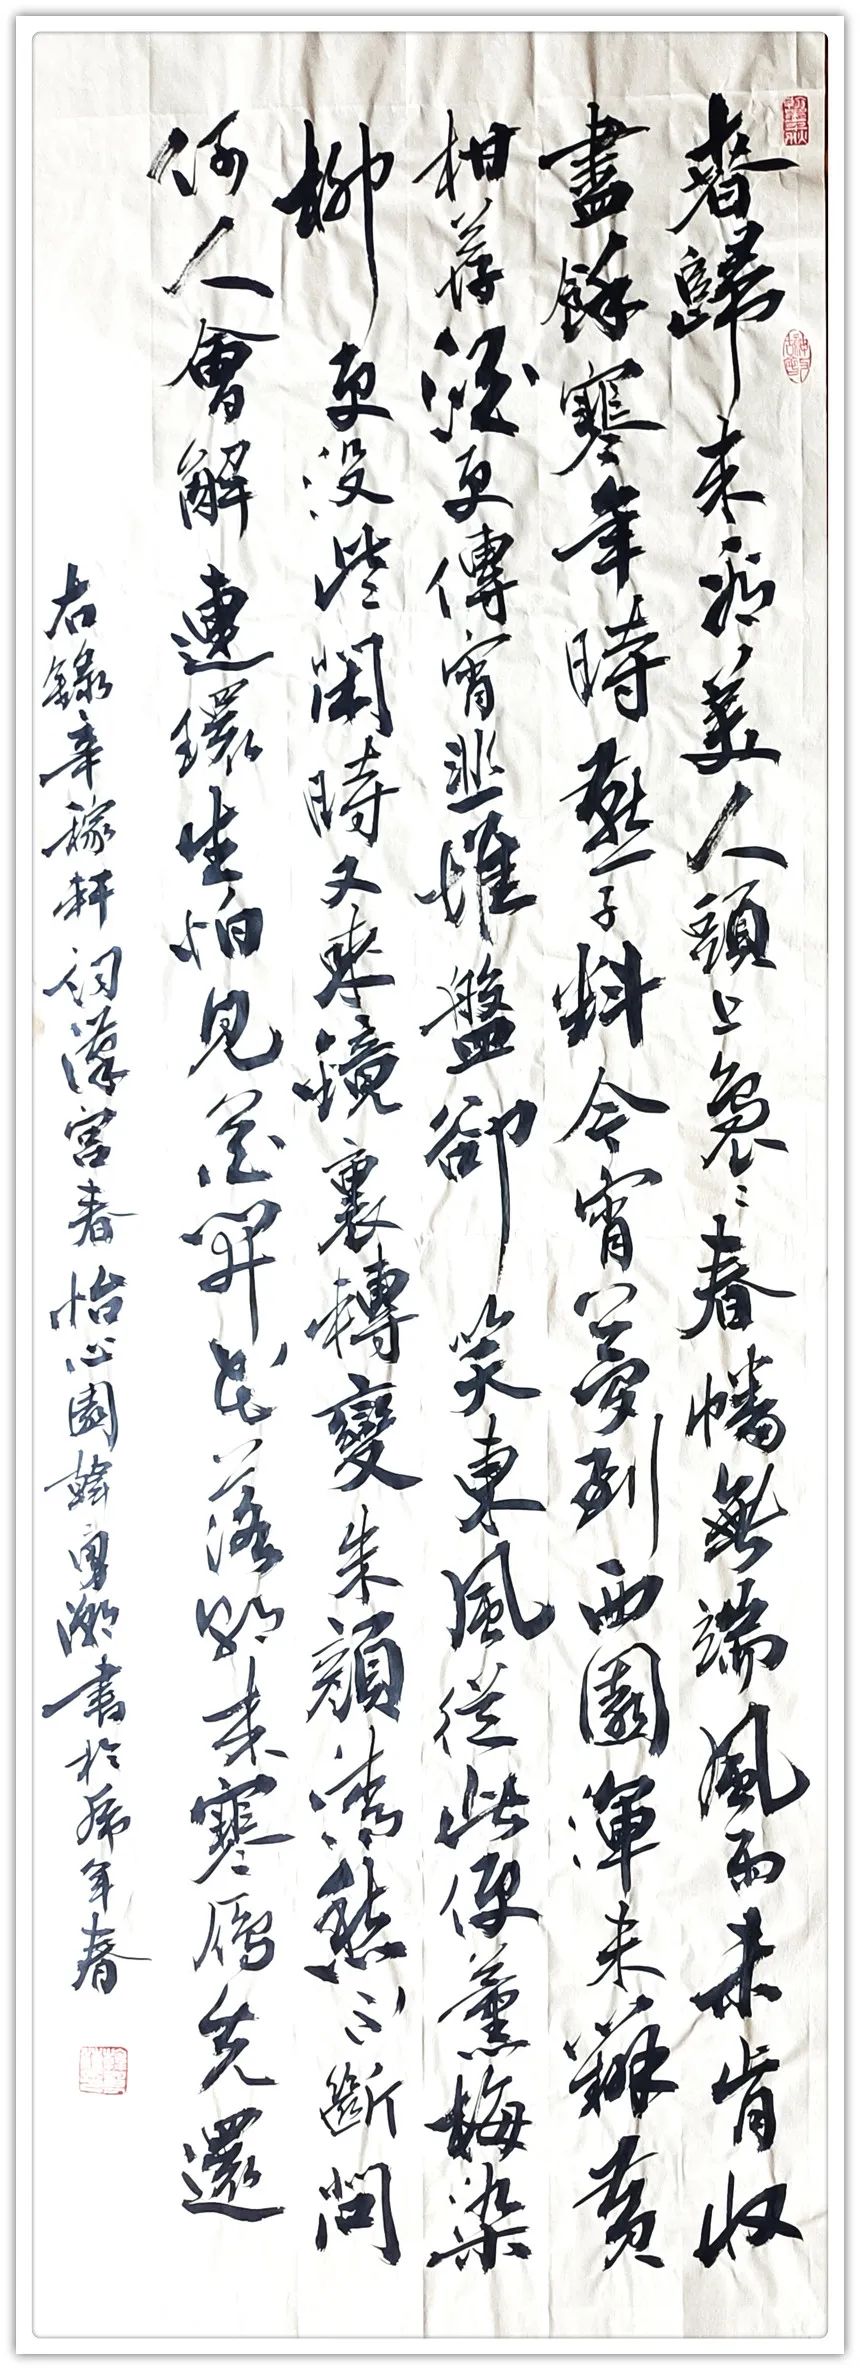 春歸來看美人頭上裊〻春幡無端風雨未肯收
盡餘寒年時燕子料今宵夢到西園渾未辦黃
柑薦酒更傳宵韭堆盤卻笑東風從此便薰梅染
柳更沒些閑時又來鏡裏轉變朱顏清愁不斷問
何人會解連環生怕見花開花落朝來寒雁先還
右錄辛稼軒詞漢宮春怡心園韓勇潮書於虎年春